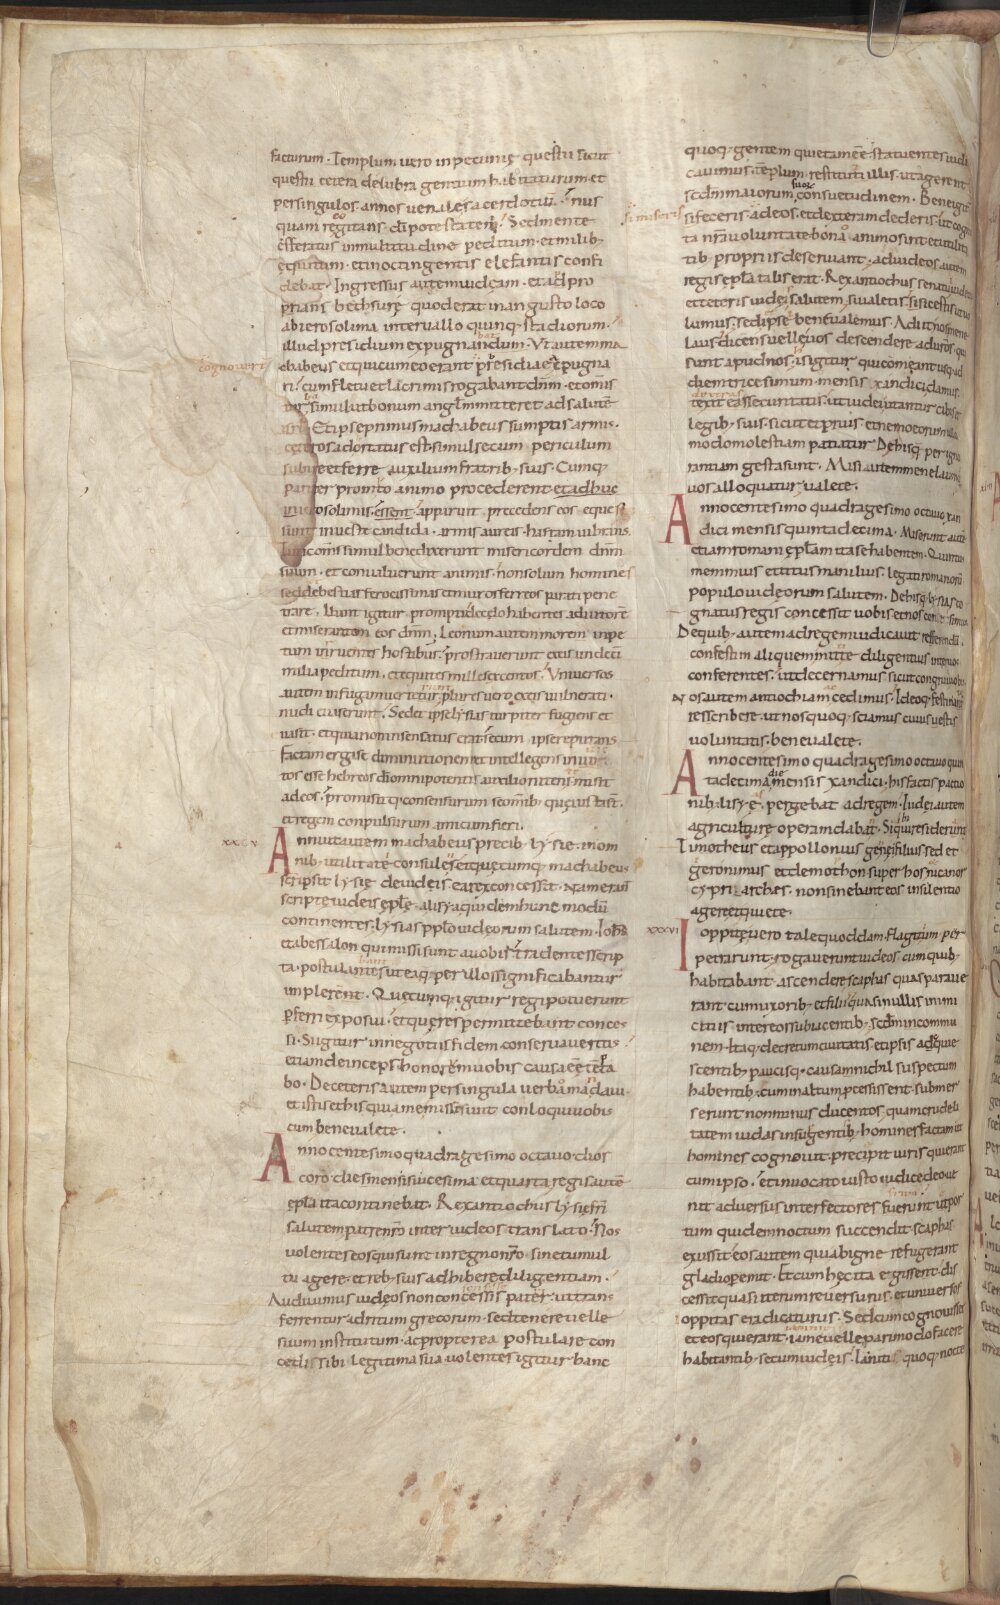 facturum · Templum vero in pecunię questū sicut
questū cetera delubra gentium habitaturum · et
per singulos annos venale sacerdotiū · nus
quam regitans dī potestatem · Sed mente
efferatus in multitudine peditum · et milib
equitum · et in octingentis elefantis confi
debat · Ingressus autem iudęam · et ad pro
prians bethsurę quod erat in angusto loco
ab ierosolima intervallo quinq stadiorum ·
illud presidium expugnandum · Ut autem ma
chabeus et qui cum eo erant presidia expugna
ri · cum fletu et lacrimis rogabant dnm · et omis
simul ut bonum anglm mitteret ad salutē
Et ipse primus machabeus sumptis armis ·
ceteros adortatus est · simul secum periculum
subire et ferre auxilium fratrib suis · Cumq
pariter promto animo procederent et adhuc
ierosolimis essent · apparuit precedens eos eques
sum in veste candida · armis aureis · hastam vibrans
simul benedixerunt misericordem dnm
suum · et convaluerunt animis · non solum homines
sed et bestias ferocissimas et muros ferreos parati pene
trare · Ibant igitur prompti de cęlo habentes adiutorē
et miserantem eos dnm · Leonum autem morem inpe
tum irruentes hostibus · prostraverunt ex eis undeci
milia peditum · et equites mille sexcentos · Universos
autem in fugam verterunt · plures vero ex eis vulnerati ·
nudi evaserunt · Sed et ipse lysias turpiter fugiens e
vasit · et quia non insensatus erat · secum ipse reputans
factam erga se diminutionem et intellegens invic
tos esse hebreos dī omnipotentis auxilio nitens · misit
ad eos · promisitq consensurum se omib quę iusta st̄ ·
et regem conpulsurum amicum fieri ·
Annuit autem machabeus precib lysię · in om
nib utilitate consules · et quęcumq machabeus
scripsit lysię de iudeis · ea rex concessit · Nam erant
scriptę iudeis eplę a lisya quidem hunc modū
continentes · lysias pplo iudęorum salutem · Iohs
et abessalon qui missi sunt a vobis · tradentes scrip
ta · postulantes ut ea q per illos significabantur
implerent · Quęcumq igitur regi potuerunt
perferri exposui · et que res permittebant conces
si · Si igitur in negotiis fidem conservaveritis ·
et iam deinceps honorem vobis causa eē tēpta
bo · De ceteris autem per singula verba mandavi ·
et istis et his qui a me missi sunt conloqui vobis
cum bene valete ·
Anno centesimo quadragesimo octavo · dios
coro die mensis vicesima et quarta · regis autē
epla ita continebat · Rex antiochus lysię frī
salutem · patre nro inter iudeos translato · Nos
volentes eos qui sunt in regno nro · sine tumul
tu agere · et reb suis adhibere diligentiam ·
Audivimus iudęos non concessis patri · ut trans
ferrentur ad ritum grecorum · sed tenere velle
suum institutum · ac propterea postulare con
cedi sibi legitima sua · volentes igitur hanc
cognovert
xxxv
quoq gentem quietam eē · statuentes iudi
cavimus · templum restitui illis · ut agerent
scdm maiorum suor̄ consuetudinem · Bene igit
si feceris ad eos · et dexteram dederis · ut cogni
ta nra voluntate bono animo sint · et utilita
tib propriis deserviant · ad iudeos autem
regis epla talis erat · Rex antiochus senatui iude
et ceteris iudeis salutem · si valetis · sic estis ut vo
lumus · sed ipse bene valemus · Adiit nos mene
laus dicens velle vos descendere ad vros · qui
sunt apud nos · is igitur qui comeant usq ad
diem tricesimum mensis xandici damus
texit eas securitatis · ut iudei utantur cibis et
legib suis · sicut et prius · et nemo eorum ullo
modo molestiam patiatur · De hisq per igno
rantiam gesta sunt · Misi autem menelaum
vos alloquatur · valete ·
Anno centesimo quadragesimo octavo xan
dici mensis quinta decima · Miserunt autē
etiam romani eplam ita se habentem · Quintus
memmius et titus manilius · legati romanorū
populo iudęorum salutem · De hisq lysias co
gnatus regis concessit vobis · et nos concessimus
De quib autem ad regem iudicavit referendū ·
confestim aliquem mitte diligentius inter vos
conferentes · ut decernamus sicut congruit vobis
Nos autem antiochiam accedimus · Ideoq festinate
rescribere · ut nos quoq sciamus cuius estis
voluntatis · bene valete ·
Anno centesimo quadragesimo octavo quin
ta decima die mensis xandici · his factis pactio
nib lisye · pergebat ad regem · Iudei autem
agriculturę operam dabat · Si qui resideruns
Timotheus et appollonius genei filius · sed et
geronimus et demothon super hos nicanor
cypri arches · non sinebunt eos in silentio
agere et quiete ·
Ioppitę vero tale quoddam flagitium per
petrarunt · rogaverunt iudeos cum quib
habitabant ascendere scaphas quas parave
rant cum uxorib et filiis quasi nullis inimi
citiis inter eos subiacentib · scdm incommu
nem · Itaq decretum civitatis et ipsis adquie
scentib pacisq causam nichil suspectum
habentib · cum in altum pcessissent · submer
serunt non minus ducentos · quam crudeli
tatem iudas in sui gentib homines factam ut
homines cognovit · precipit viris qui erant
cum ipso · et invocato iusto iudice deo ve
nit adversus interfectores fuerunt · ut por
tum quidem noctum succendit · scaphas
exussit · eos autem qui ab igne refugerant
gladio peremit · Et cum hęc ita egissent · dis
cessit quasi iterum reversurus · et universos
ioppitas eradicaturus · Sed cum cognovisset
et eos qui erant · iamnie velle pari modo facere
habitantib secum iudęis · Iamnitis quoq nocte
si miseris
xxxvi